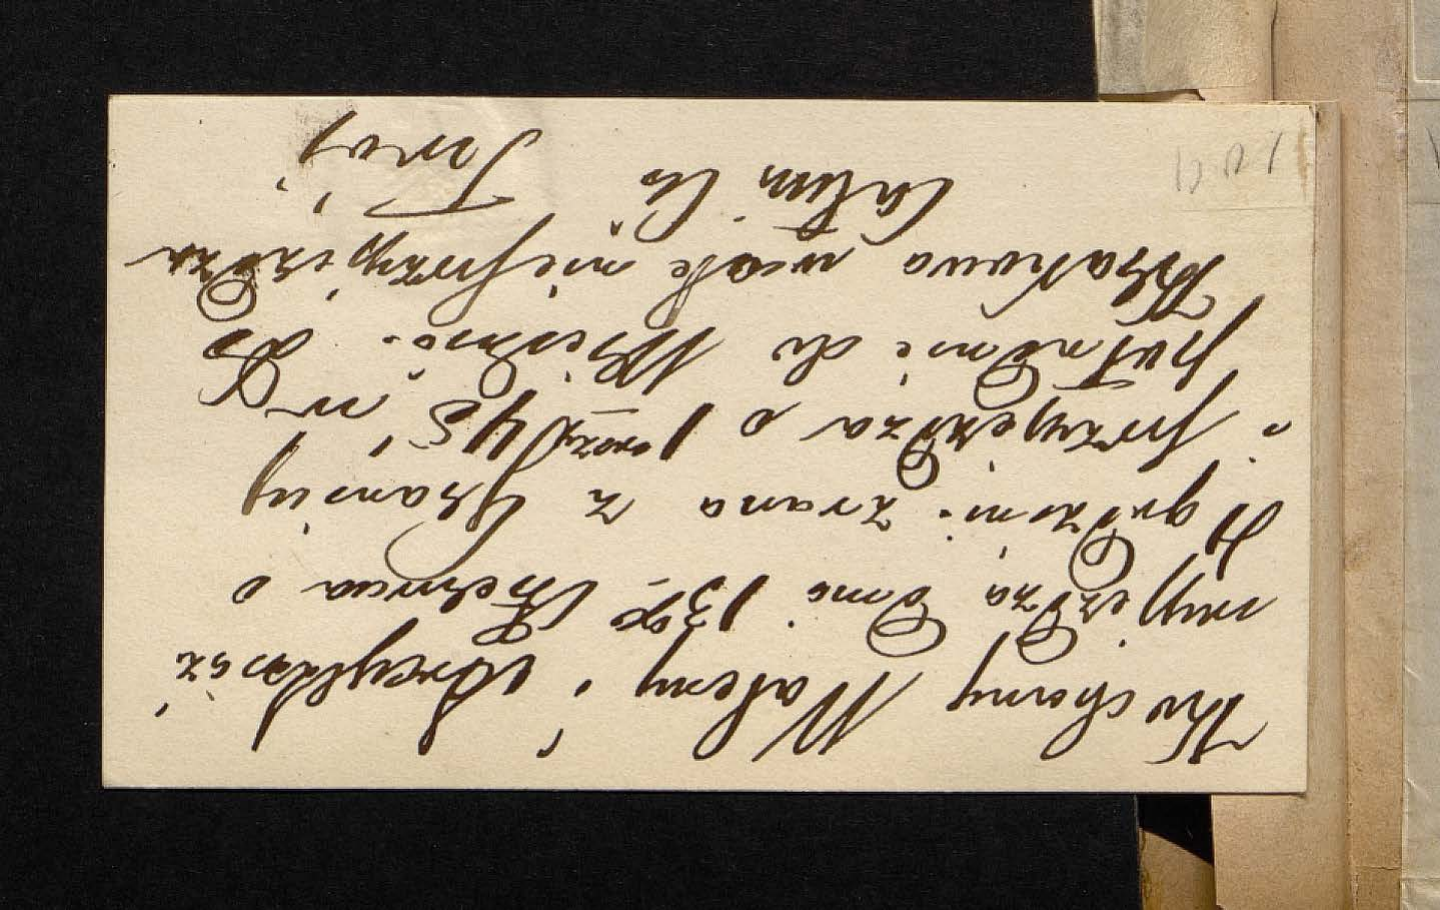 Kochany Walery! Arcyksiąże
wyjeżdża dnia 13go Czerwca o
godzinie zrana z Granicy
i przyjeżdża o 1 m 45 w
południe do Wiednia. Do
Krakowa wcale nieprzyjeżdża
Całuję Cię
Twój